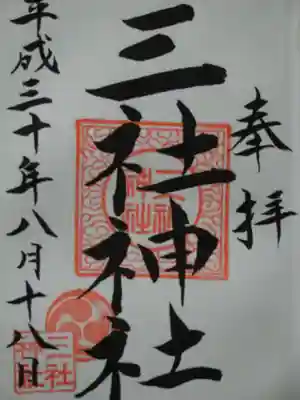 奉拝
三社神社
平成三十年八月十八日
三社
神社